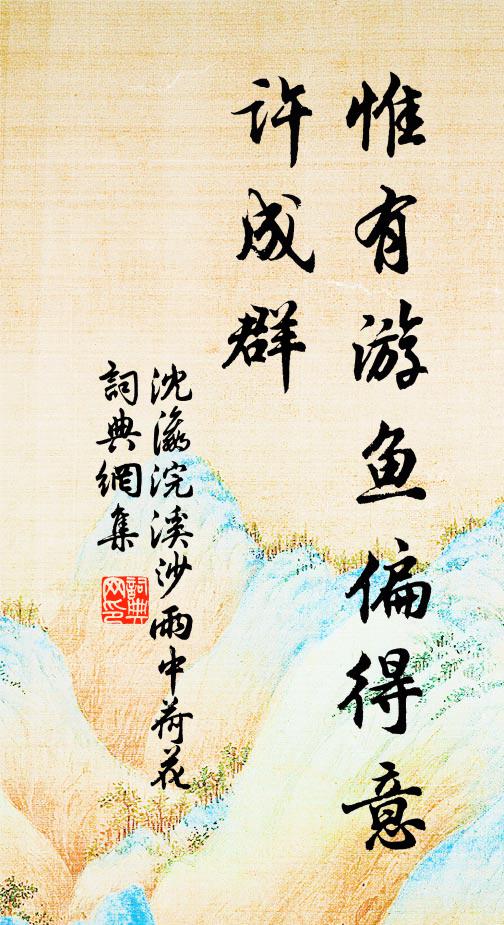 惟有游鱼偏得意
许成群
沈瀛浣溪沙雨中荷花
詞典網集
詞典
网印